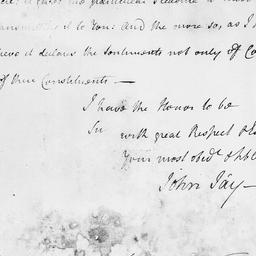 it gives me particular Pleasure
transmitting it to You: And the more so, as I
declares the Sentiments not only of Co
of their Constituents —
I have the Honor to be
Sir with great Respect &
Your most obedt. &
John Jay —